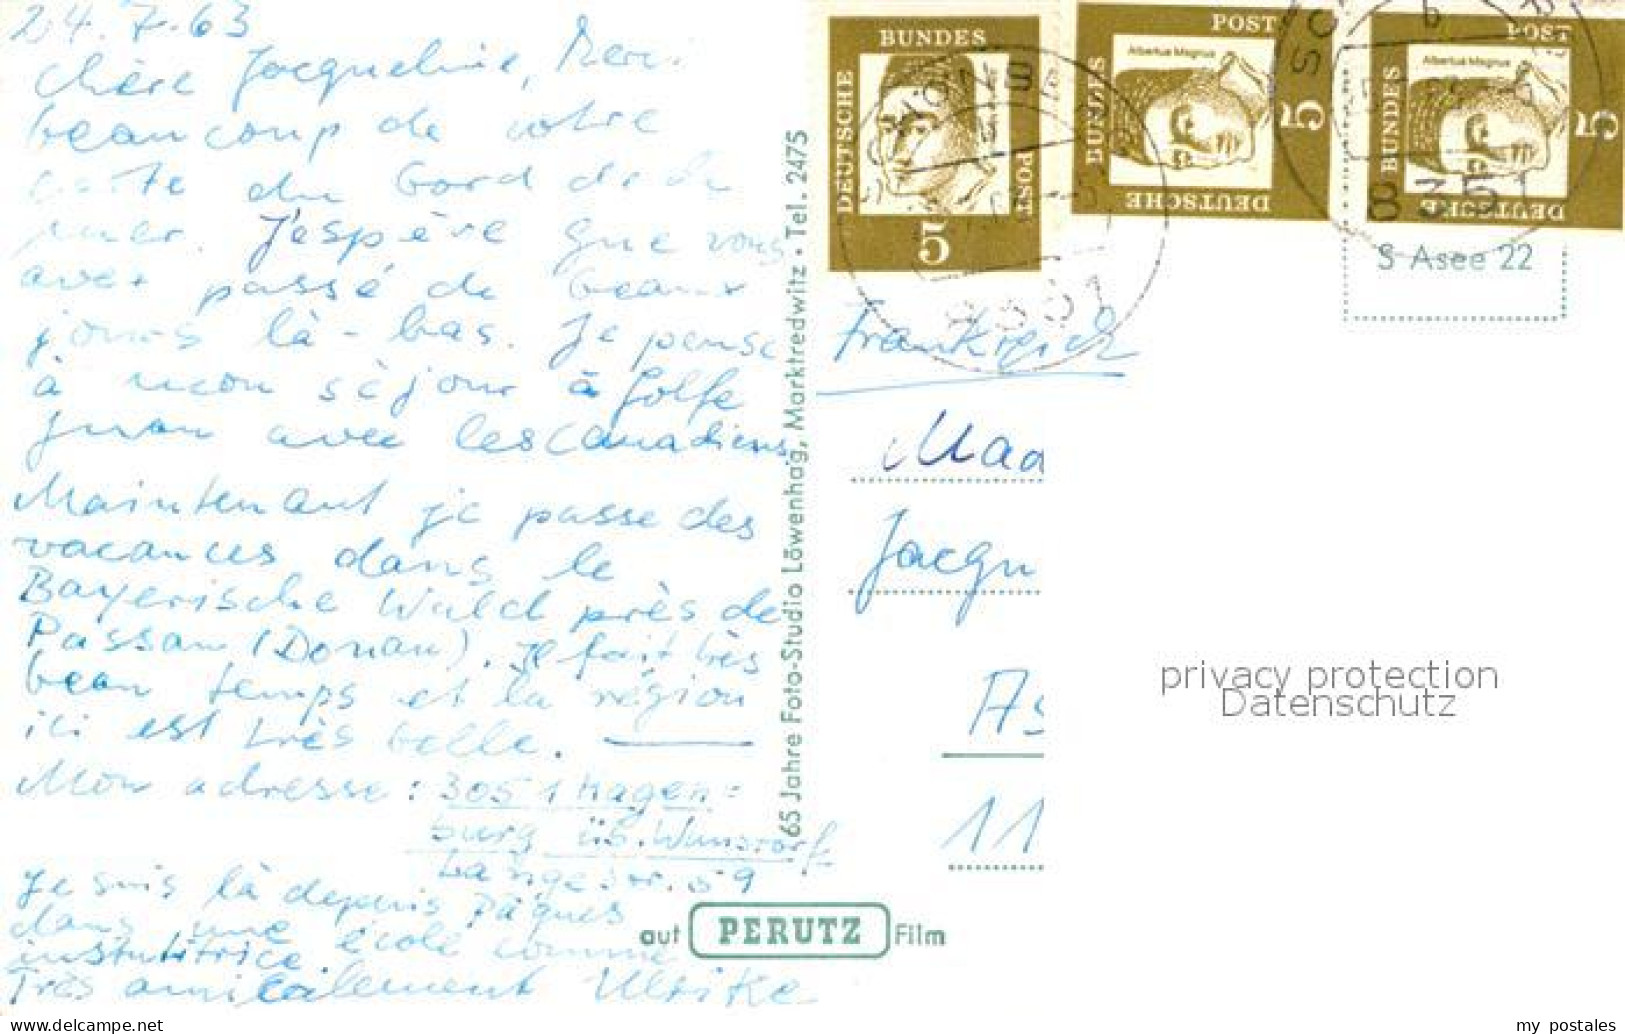 24.7.63
Chère Jacqueline, Merci
beaucoup de votre
carte du bord de la
mer. J'espère que vous
avez passé de beaux
jours là-bas. Je pense
à mon séjour à Golfe
Juan avec les Canadiens.
Maintenant je passe des
vacances dans le
Bayerische Wald près de
Passau (Donau). Il fait très
beau temps et la région
ici est très belle.
Mon adresse : 3051 Hagen=
burg üb. Wunstorf
Langestr. 59
Je suis là depuis Pâques
dans une école comme
institutrice.
Très amicalement Ulrike
65 Jahre Foto-Studio Löwenhag, Marktredwitz · Tel. 2475
auf PERUTZ Film
DEUTSCHE BUNDES POST
5
DEUTSCHE BUNDES POST
Albertus Magnus
5
DEUTSCHE BUNDES POST
Albertus Magnus
5
S Asee 22
Frankreich
Mad
Jacqu
As
11
privacy protection
Datenschutz
www.delcampe.net
my_postales